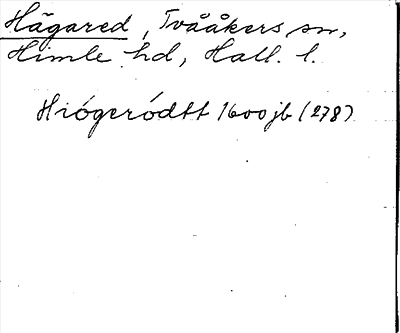 Hägared, Tvååkers sn,
Himle hd, Hall. l.
Hiógeródtt 1600 jb (278)